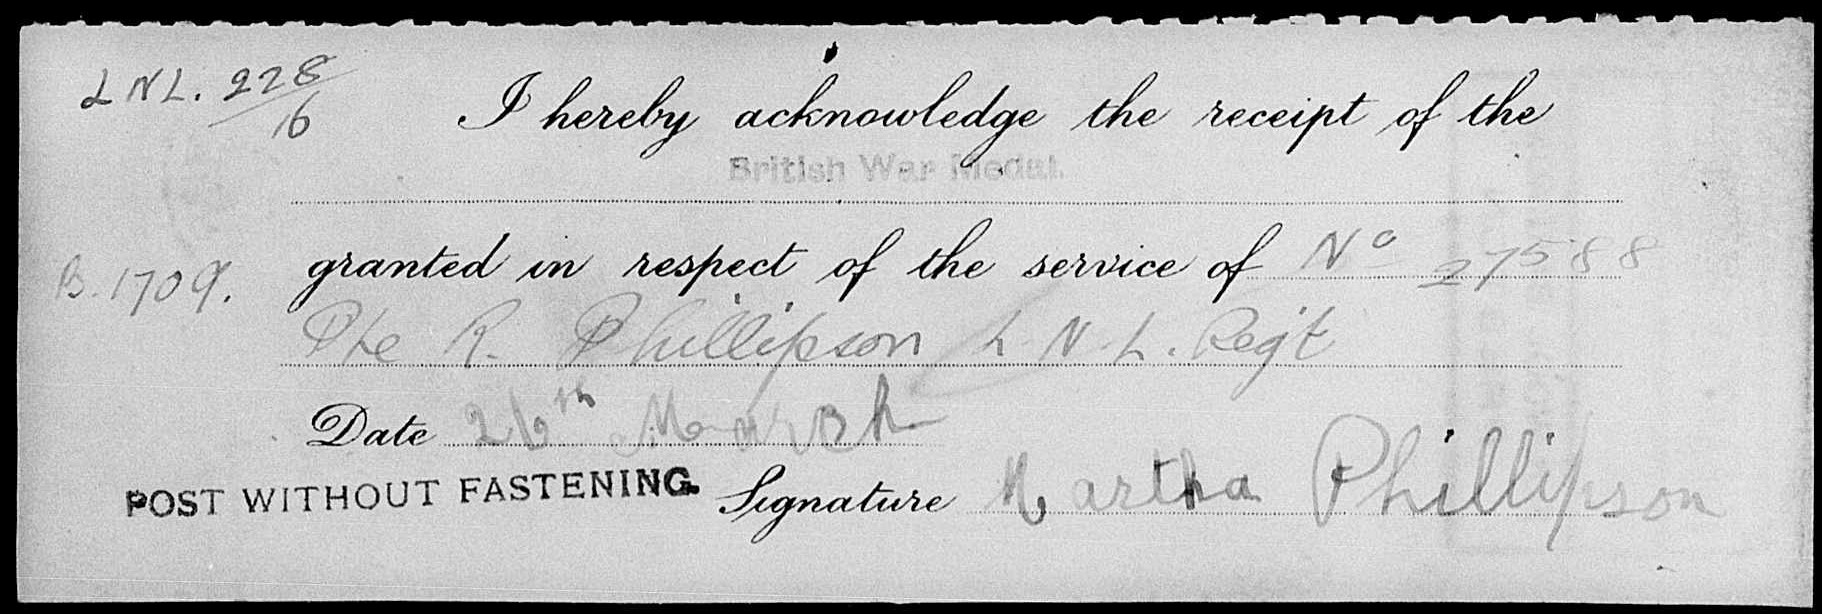 LNL. 228/16
I hereby acknowledge the receipt of the
British War Medal.
granted in respect of the service of No 27588
B. 1709.
Pte R. Phillipson L. N. L. Reg't
Date 26th March
POST WITHOUT FASTENING.
Signature Martha Phillipson